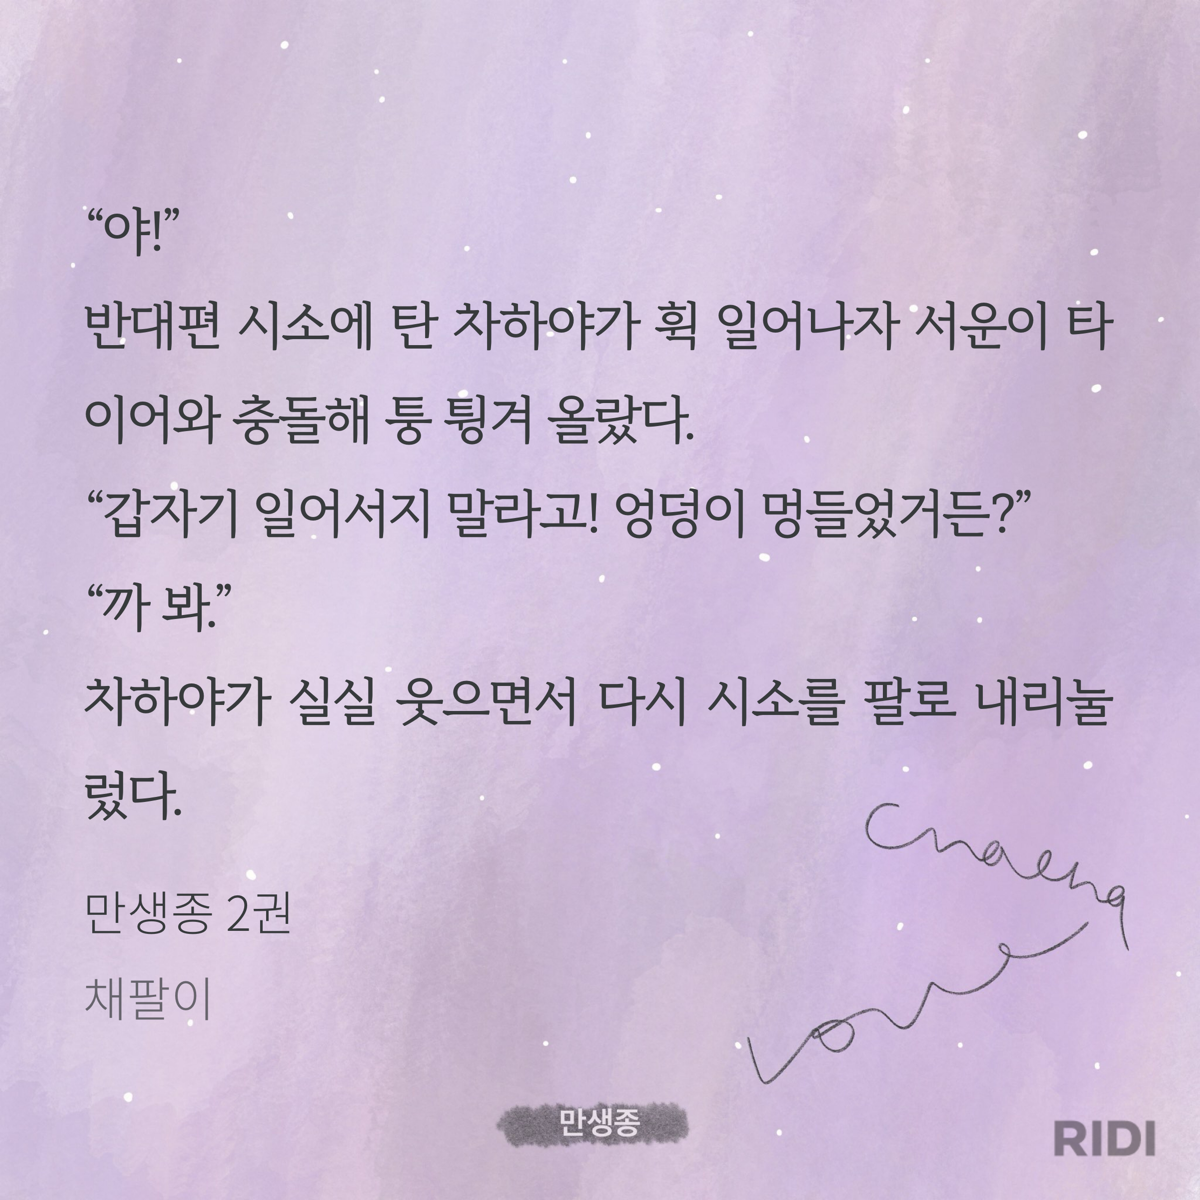 “야!”
반대편 시소에 탄 차하야가 휙 일어나자 서운이 타
이어와 충돌해 퉁 튕겨 올랐다.
“갑자기 일어서지 말라고! 엉덩이 멍들었거든?”
“까 봐.”
차하야가 실실 웃으면서 다시 시소를 팔로 내리눌
렀다.
만생종 2권
채팔이
만생종
RIDI